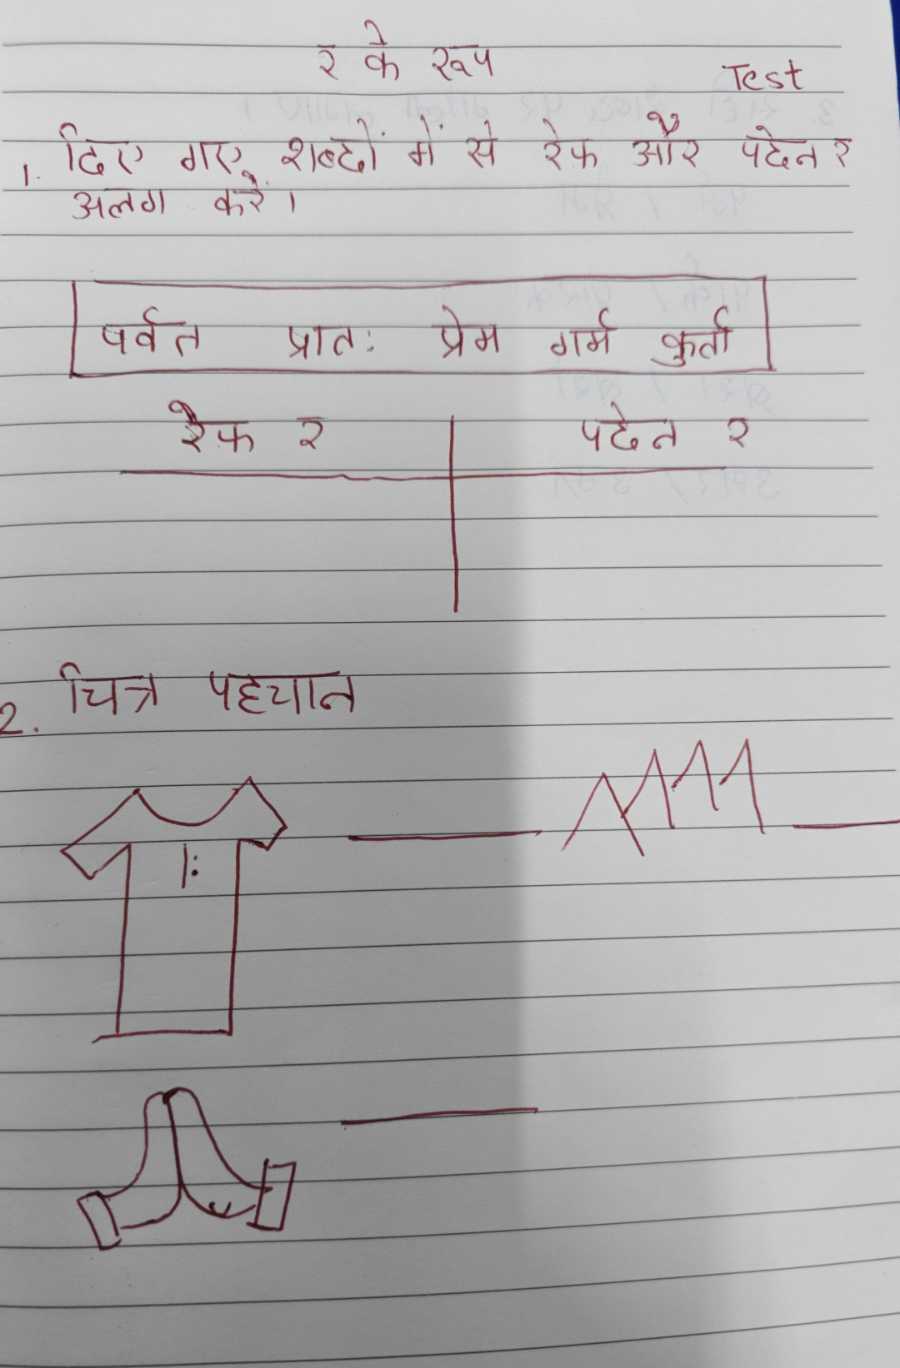 र के रूप
Test
1. दिए गए शब्दों में से रेफ और पदेन र
अलग करें।
पर्वत प्रातः प्रेम गर्म कुर्ता
रैफ र पदेन र
2. चित्र पहचान